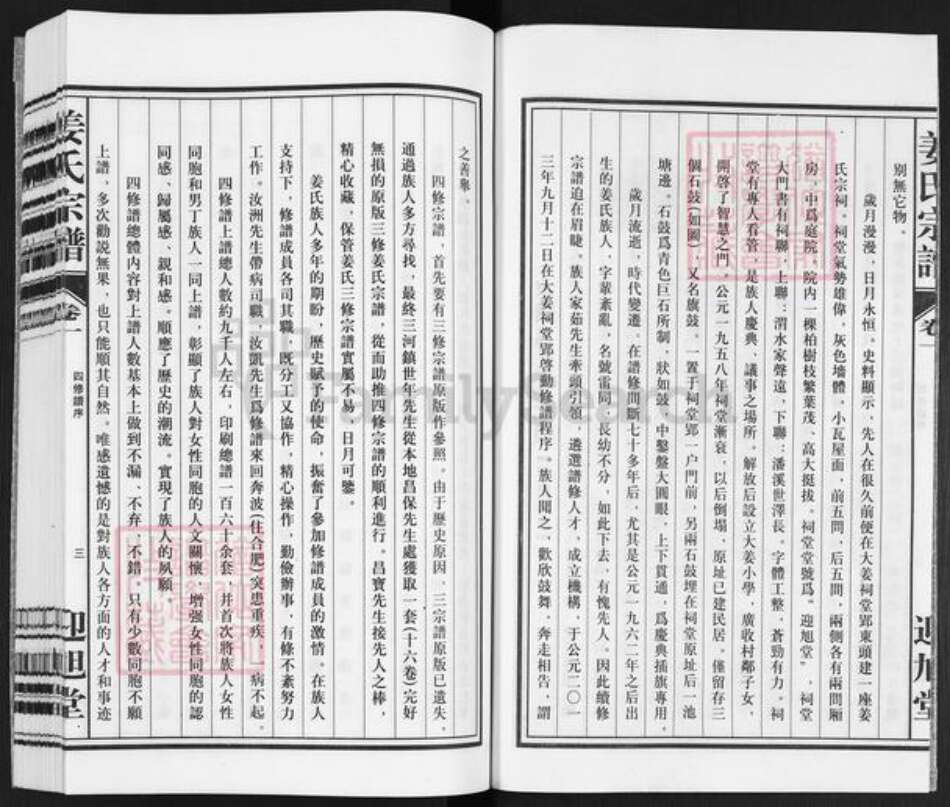 姜氏宗譜
卷一
迎旭堂
別無它物。
歲月漫漫，日月永恒。史料顯示，先人在很久前便在大姜祠堂郢東頭建一座姜
氏宗祠。祠堂氣勢雄偉，灰色墻體。小瓦屋面，前五間，后五間，兩側各有兩間厢
房，中爲庭院。院内一棵柏樹枝繁葉茂、高大挺拔。祠堂堂號爲“迎旭堂”，祠堂
大門書有祠聯，上聯：渭水家聲遠，下聯：潘溪世澤長。字體工整，蒼勁有力。祠
堂有專人看管，是族人慶典、議事之場所。解放后設立大姜小學，廣收村鄰子女，
開啓了智慧之門。公元一九五八年祠堂漸衰，以后倒塌，原址已建民居。僅留存三
個石鼓（如圖），又名旗鼓，一置于祠堂郢一户門前，另兩石鼓埋在祠堂原址后一池
塘邊。石鼓爲青色巨石所制，狀如鼓，中鑿盤大圓眼，上下貫通，爲慶典插旗專用。
歲月流逝，時代變遷。在譜修間斷七十多年后，尤其是公元一九六二年之后出
生的姜氏族人，字輩紊亂，名號雷同，長幼不分，如此下去，有愧先人。因此續修
宗譜迫在眉睫。族人家茹先生牽頭引領，遴選譜修人才，成立機構，于公元二〇一
三年九月十二日在大姜祠堂郢啓動修譜程序。族人聞之，歡欣鼓舞，奔走相告，謂
之善舉。
四修宗譜，首先要有三修宗譜原版作參照。由于歷史原因，三宗譜原版已遺失。
通過族人多方尋找，最終三河鎮世年先生從本地昌保先生處獲取一套（十六卷）完好
無損的原版三修姜氏宗譜，從而助推四修宗譜的順利進行。昌寶先生接先人之棒，
精心收藏，保管姜氏三修宗譜實屬不易，日月可鑒。
姜氏族人多年的期盼，歷史賦予的使命，振奮了參加修譜成員的激情。在族人
支持下，修譜成員各司其職，既分工又協作，精心操作，勤儉辦事，有條不紊努力
工作。汝洲先生帶病司職，汝凱先生爲修譜來回奔波（住合肥）突患重疾，一病不起。
四修譜上譜總人數約九千人左右，印刷總譜一百六十余套，并首次將族人女性
同胞和男丁族人一同上譜，彰顯了族人對女性同胞的人文關懷，增强女性同胞的認
同感、歸屬感、親和感。順應了歷史的潮流。實現了族人的夙願。
四修譜總體内容對上譜人數基本上做到不漏、不弃、不錯，只有少數同胞不願
上譜，多次勸説無果，也只能順其自然。唯感遺憾的是對族人各方面的人才和事迹
姜氏宗譜
卷一
四修續序
三
迎旭堂
FamilySearch